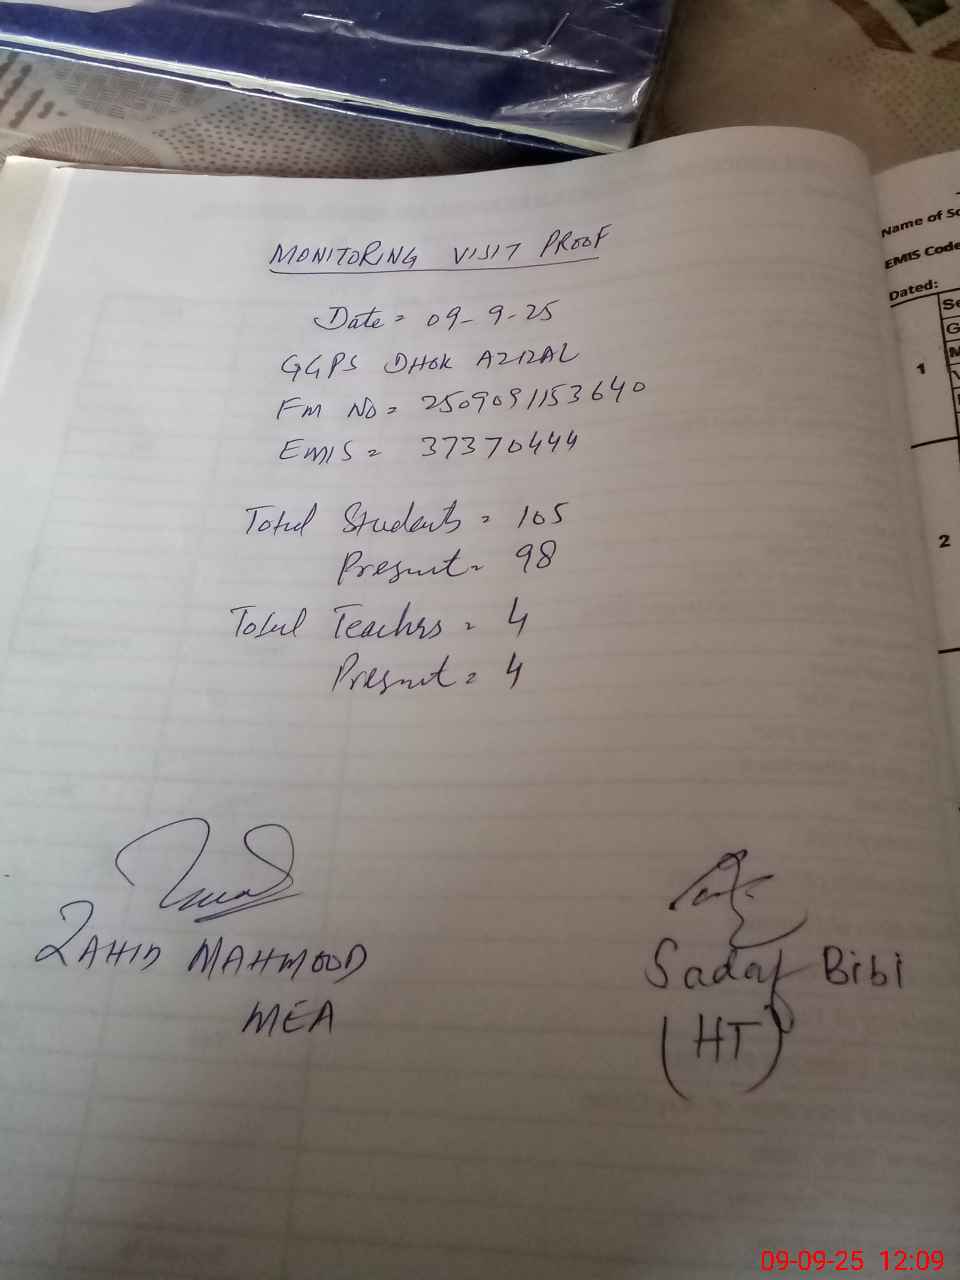 MONITORING VISIT PROOF
Date = 09-9-25
GGPS DHOK AZIZAL
Fm No = 2509091153640
EMIS = 37370444
Total Students = 105
Present = 98
Total Teachrs = 4
Present = 4
ZAHID MAHMOOD
MEA
Sadaf Bibi
(HT)
Name of Sc
EMIS Code
Dated:
1
2
09-09-25 12:09